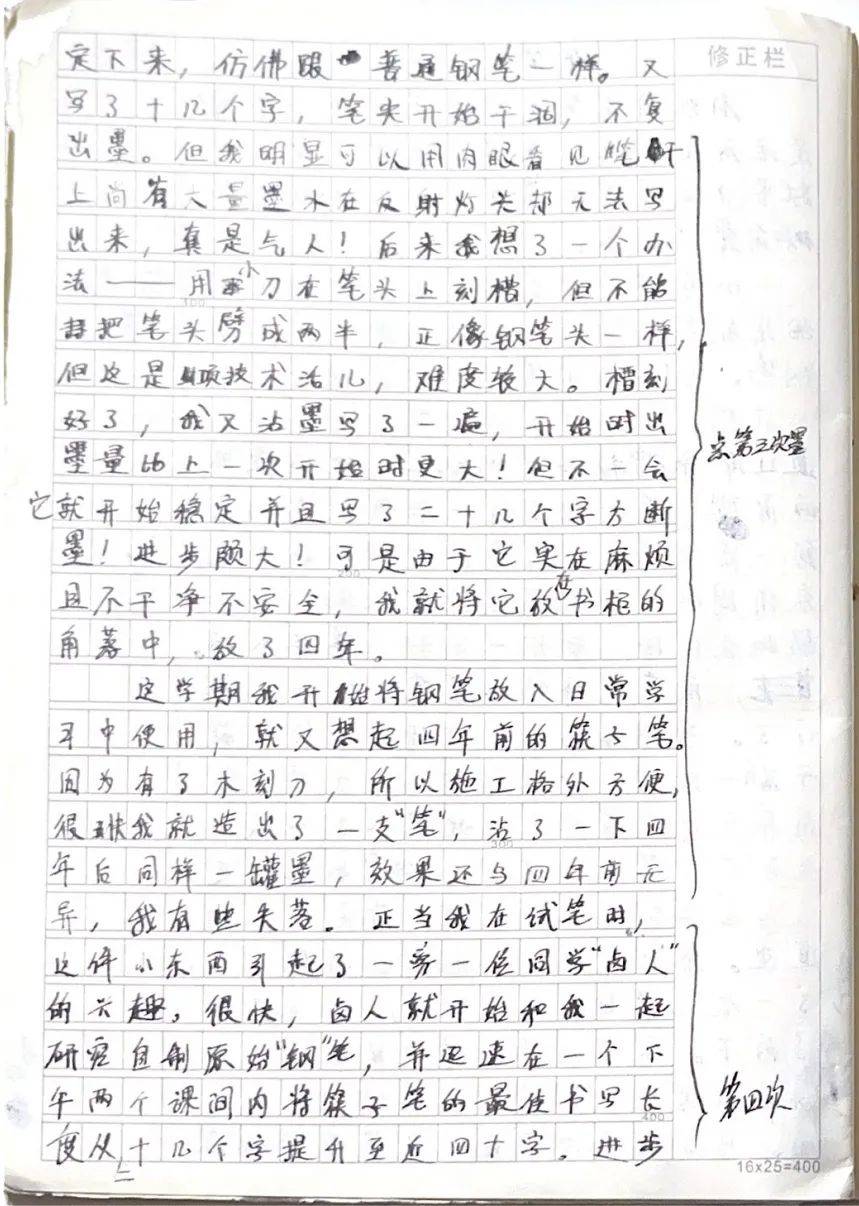 修正栏
定下来，仿佛跟普通钢笔一样。又
写了十几个字，笔尖开始干涸，不复
出墨。但我明显可以用肉眼看见笔杆
上尚有大量墨水在反射灯光却无法写
出来，真是气人！后来我想了一个办
法——用小刀在笔头上刻槽，但不能
把笔头劈成两半，正像钢笔头一样，
但这是项技术活儿，难度较大。槽刻
好了，我又沾墨写了一遍，开始时出
墨量比上一次开始时更大！但不一会
它就开始稳定并且写了二十几个字方断
墨！进步颇大！可是由于它实在麻烦
且不干净不安全，我就将它放在书柜的
角落中，放了四年。
这学期我开始将钢笔放入日常学
习中使用，就又想起四年前的筷子笔。
因为有了木刻刀，所以施工格外方便，
很快我就造出了一支“笔”，沾了一下四
年后同样一罐墨，效果还与四年前无
异，我有些失落。正当我在试笔时，
这件小东西引起了一旁一位同学“卤人”
的兴趣，很快，卤人就开始和我一起
研究自制原始“钢”笔，并迅速在一个下
午两个课间内将筷子笔的最佳书写长
度从二十几个字提升至近四十字。进步
点第三次墨
第四次
100
200
300
400
16x25=400